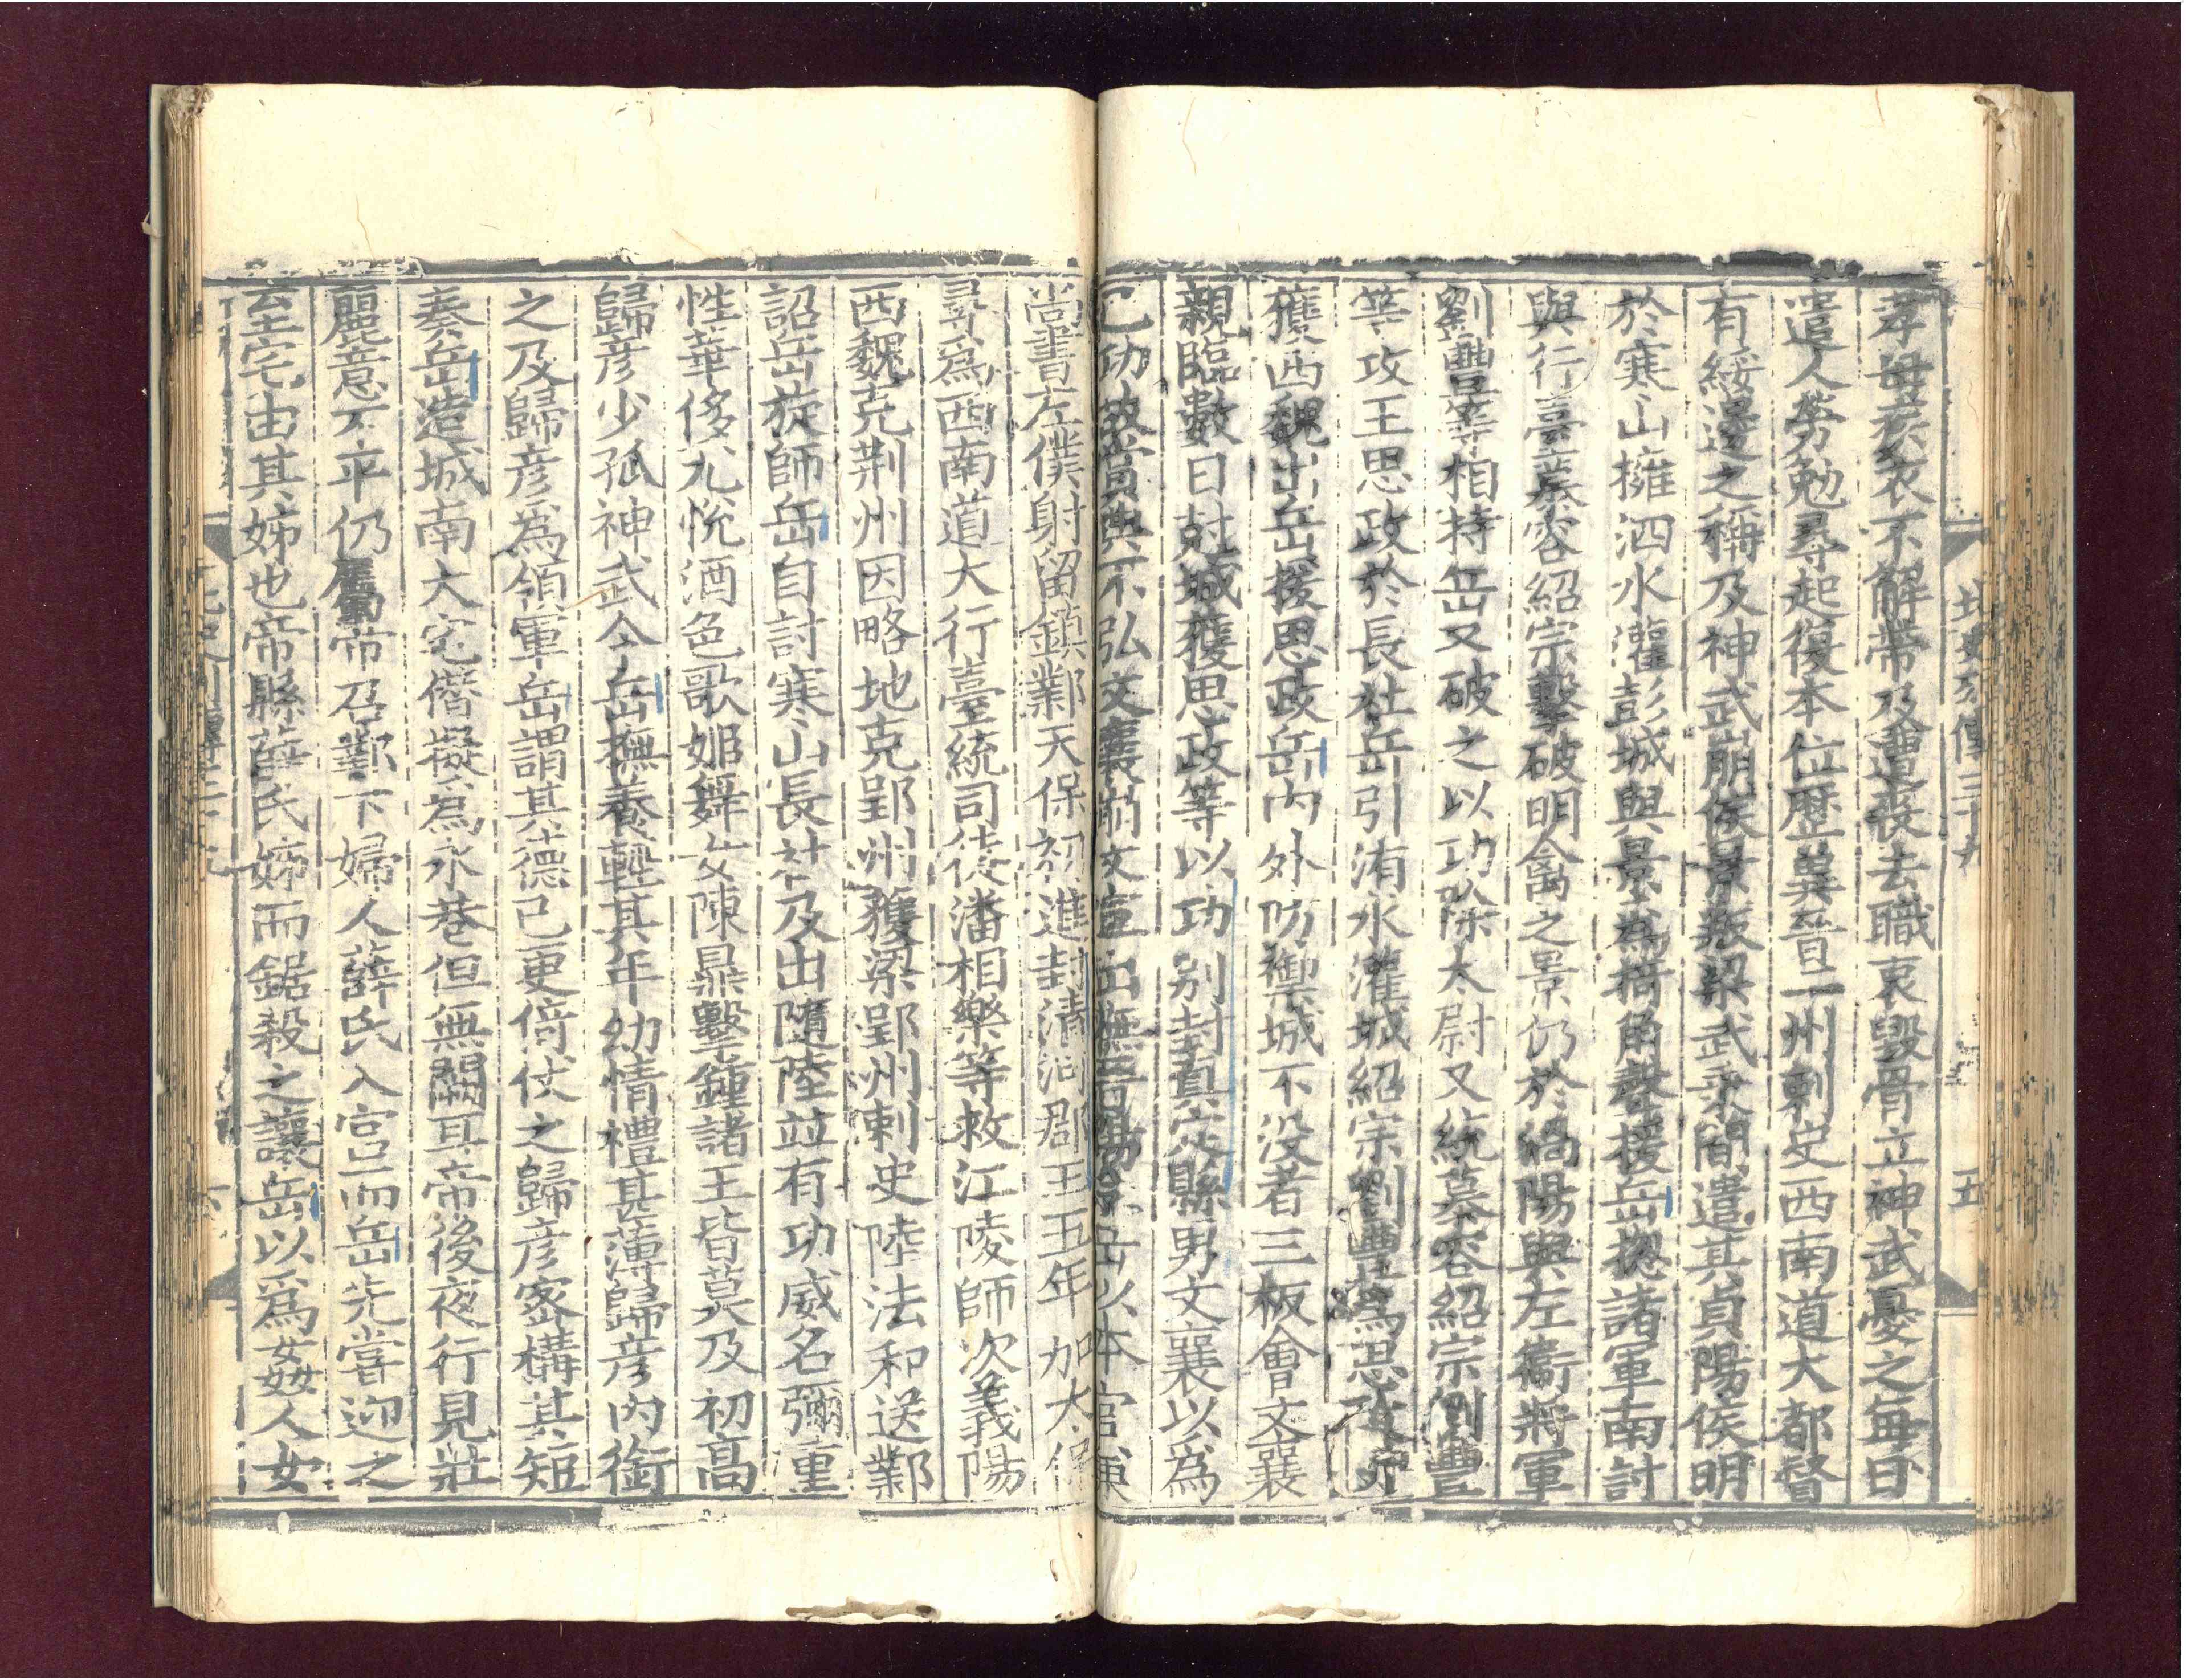 孝母疾衣不解帶及遭喪去職哀毀骨立神武憂之每日
遣人勞勉尋起復本位歷冀晉二州刺史西南道大都督
有綏邊之稱及神武崩侯景叛梁武乘間遣其貞陽侯明
於寒山擁泗水灌彭城與景為掎角聲援岳揔諸軍南討
與行臺慕容紹宗擊破明禽之景仍於渦陽與左衞將軍
劉豐等相持岳又破之以功除太尉又統慕容紹宗劉豐
等攻王思政於長社岳引洧水灌城紹宗劉豐為思政所
獲西魏出岳援思政岳內外防禦城不没者三板會文襄
親臨數日尅城獲思政等以功别封真定縣男文襄以為
己功故賞典不弘文襄崩文宣出撫晉陽令岳以本官兼
尚書左僕射留鎮鄴天保初進封清河郡王五年加太保
尋為西南道大行臺統司徒潘相樂等救江陵師次義陽
西魏克荆州因略地克郢州獲梁郢州刺史陸法和送鄴
詔岳旋師岳自討寒山長社及出隨陸並有功威名彌重
性華侈尤悅酒色歌姬舞女陳鼎擊鍾諸王皆莫及初高
歸彥少孤神武令岳撫養輕其年幼情禮甚薄歸彥內銜
之及歸彥為領軍岳謂其德己更倚仗之歸彥密構其短
奏岳造城南大宅僭擬為永巷但無闕耳帝後夜行見壯
麗意不平仍屬帝召鄴下婦人薛氏入宮而岳先嘗迎之
至宅由其姊也帝縣薛氏姊而鋸殺之讓岳以爲姦人女
北史列傳三十九
五